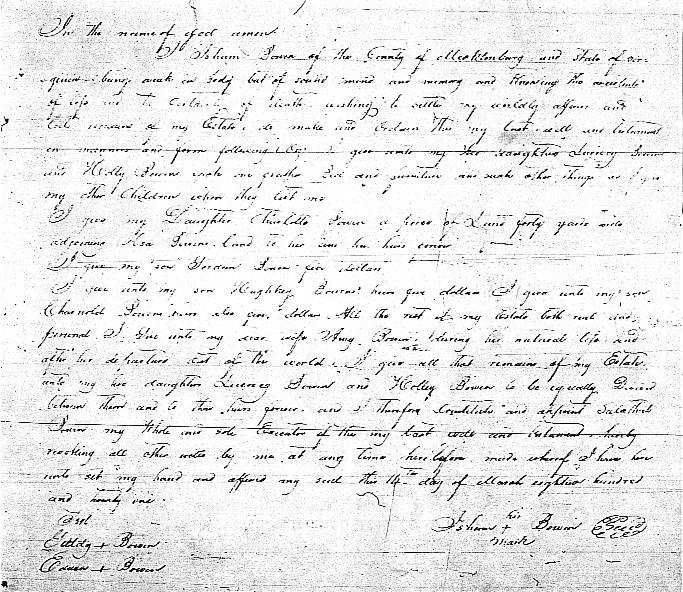 In the name of god amen
I Isham Bowen of the County of Mecklenburg and state of vir-
ginia being weak in body but of sound mind and memory and knowing the
of life and the of death, wishing to settle my worldly affairs and
of my Estate do make and this my last will and testament
in manner and form following I give unto my two daughters Bowen
and Holly Bowen each one feather Bed and furniture and such other things as I give
my other Children when they left me
I give my Daughter Charlotte Bowen a piece of Land forty yards wide
adjoining Asa Bowens land to her and her heirs
I give my son Jordan Bowen five dollars
I give unto my son Bowens heirs five dollars I give unto my son
Bowens heirs also five dollars All the rest of my Estate both real and
personal I give unto my dear wife Amy Bowen during her natural life and
after her departure out of the world I give all that remains of my Estate
unto my two daughters Bowen and Holley Bowen to be equally Divided
between them and to their heirs forever and I therefore Constitute and appoint
Bowen my whole and sole Executor of this my last will and testament hereby
revoking all other wills by me at any time heretofore made whereof I have here
unto set my hand and affixed my seal this 14th day of March eighteen hundred
and twenty one
Test
+ Bowen
+ Bowen
Isham + Bowen Seal
his
mark